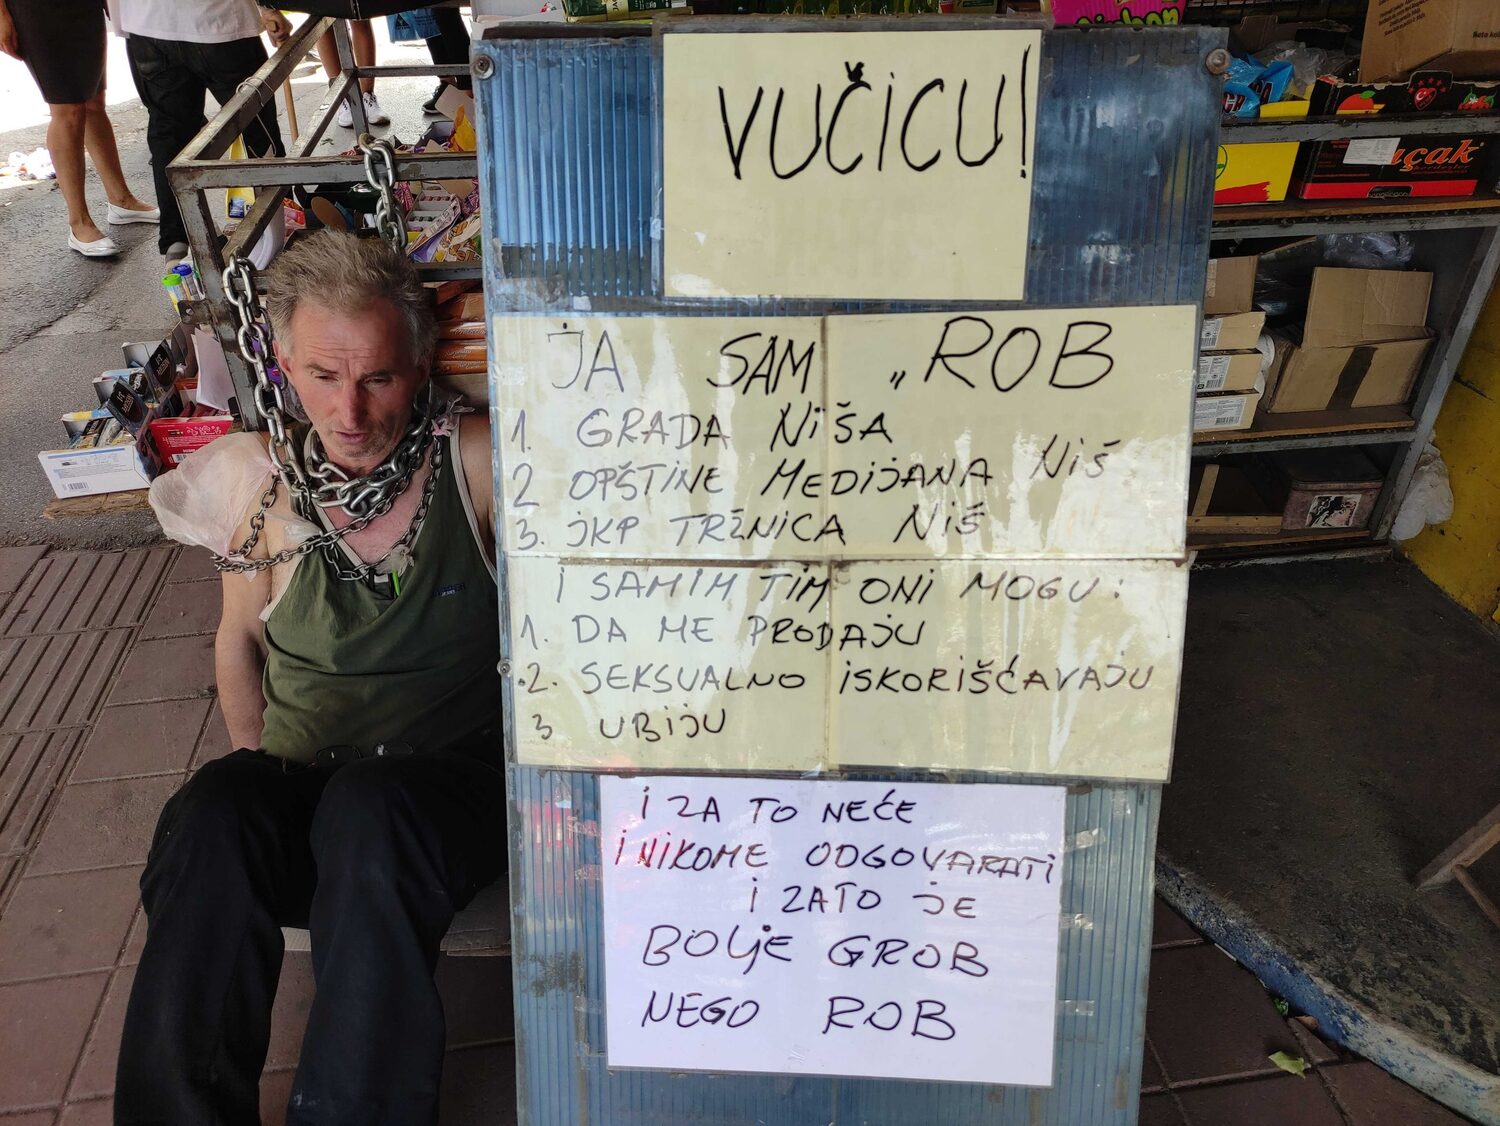 VUČiCU!
JA SAM „ROB
1. GRADA NiŠA
2 OPŠTINE MEDIJANA NiŠ
3. JKP TRŽNICA NiŠ
I SAMIM TIM ONI MOGU:
1. DA ME PRODAJU
2. SEKSUALNO ISKORIŠĆAVAJU
3 UBIJU
I ZA TO NEĆE
I NIKOME ODGOVARATI
I ZATO JE
BOLJE GROB
NEGO ROB